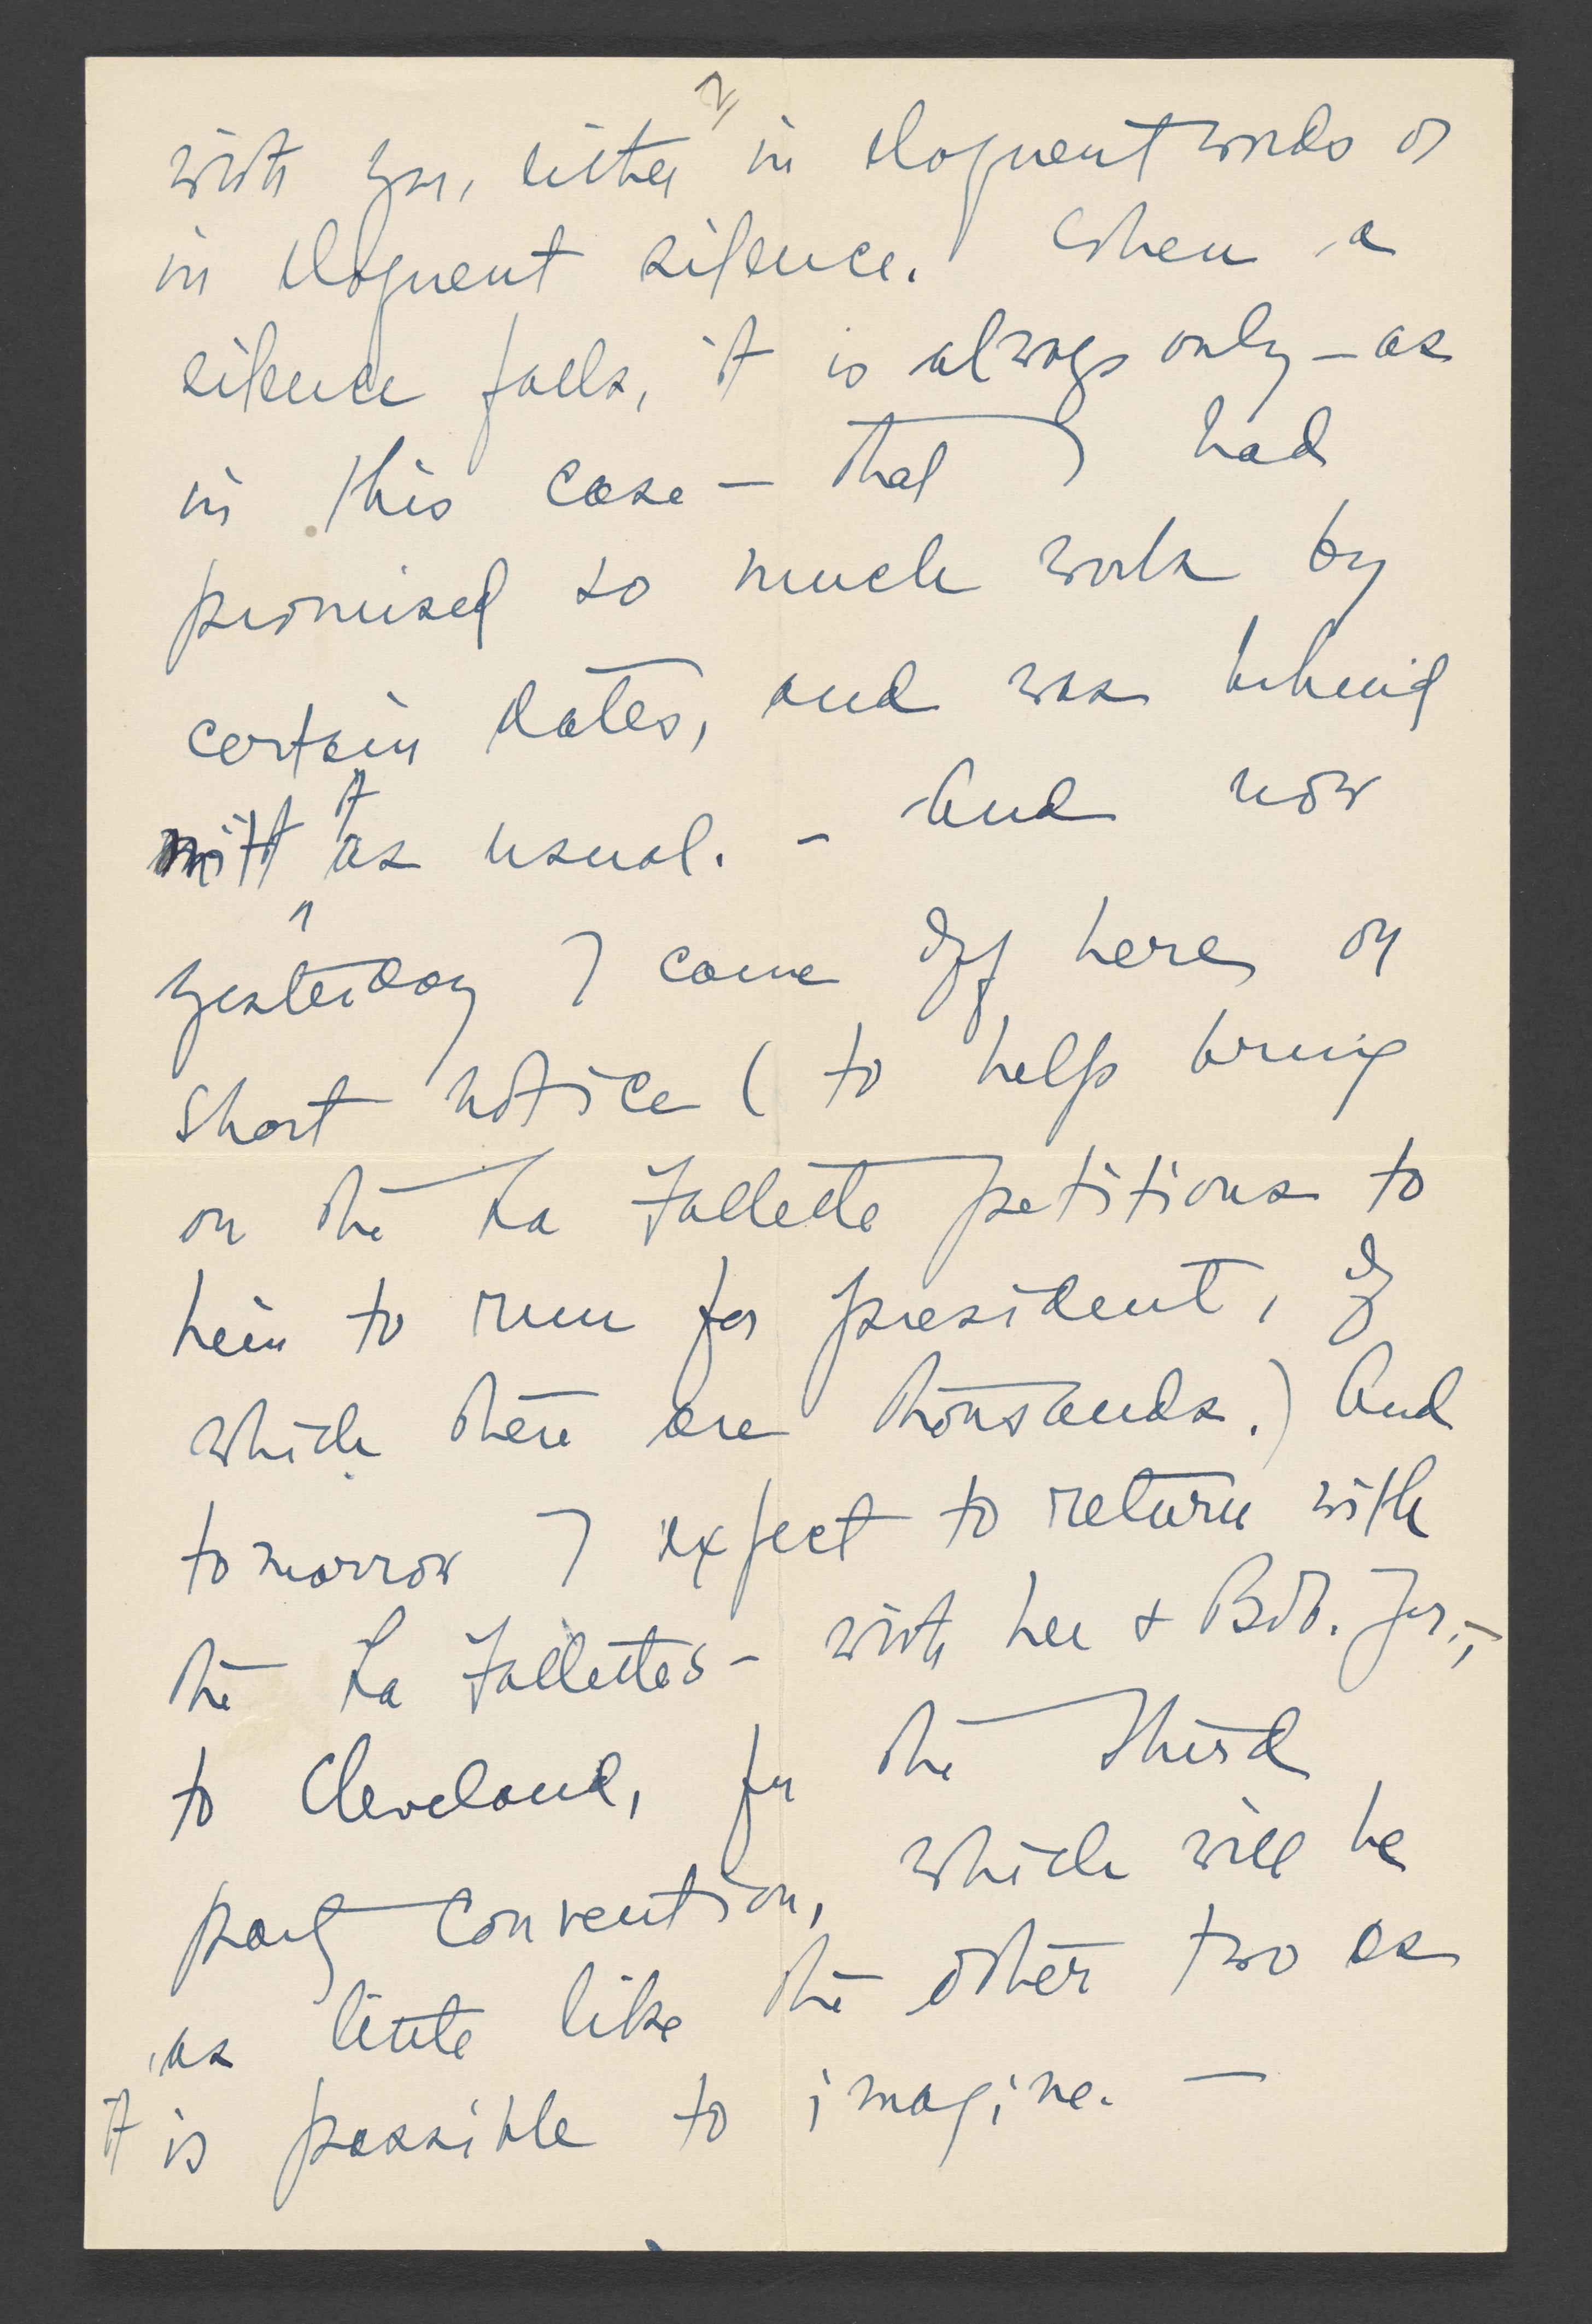 2
with you, either in eloquent words or
in eloquent silence. When a
silence falls, it is always only — as
in this case — that I had
promised so much work by
certain dates, and was behind
with it as usual. — And now
yesterday I came off here on
short notice (to help bring
on the La Follette petitions to
him to run for president, of
which there are thousands.) And
tomorrow I expect to return with
the La Follettes — with her & Bob. Jr., —
to Cleveland, for the Third
party Convention, which will be
as little like the other two as
it is possible to imagine. —